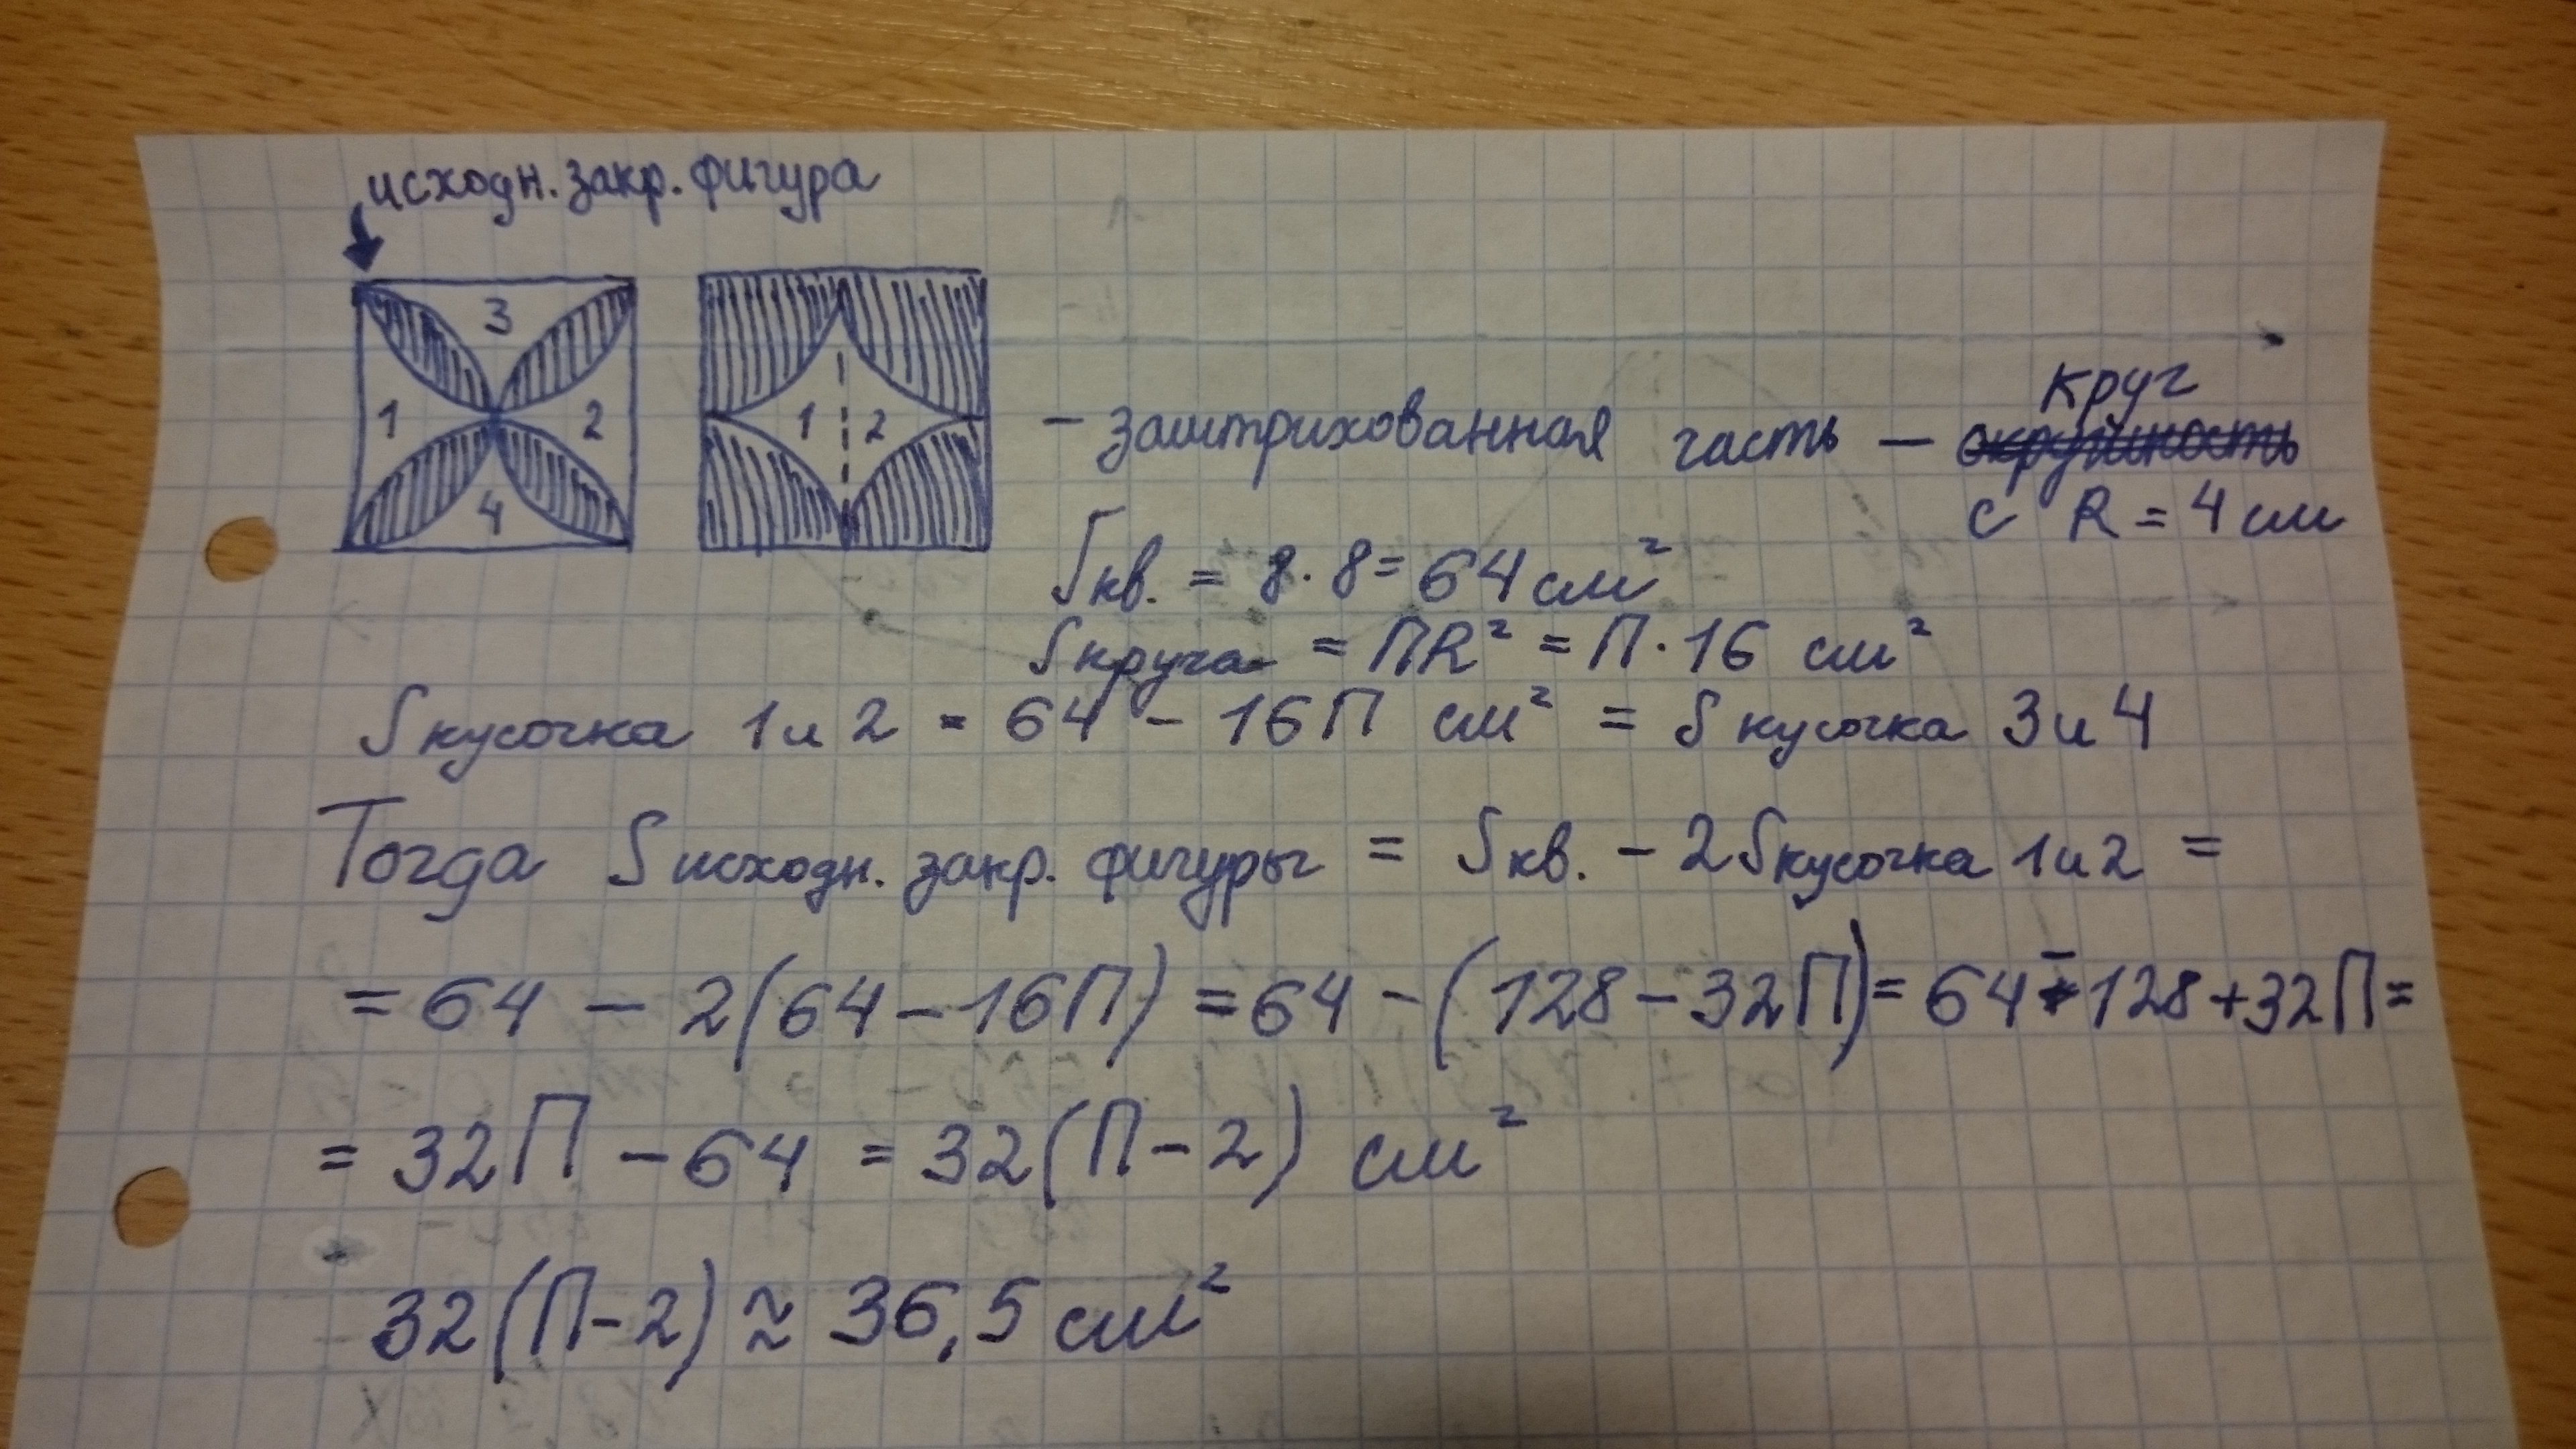 исходн. закр. фигура
3
1 2
4
1 2
– заштрихованная часть – круг
с R = 4 см
Sкв. = 8 · 8 = 64 см²
Sкруга = ПR² = П · 16 см²
Sкусочка 1 и 2 = 64 – 16П см² = Sкусочка 3 и 4
Тогда Sисходн. закр. фигуры = Sкв. – 2Sкусочка 1 и 2 =
= 64 – 2(64 – 16П) = 64 – (128 – 32П) = 64 – 128 + 32П =
= 32П – 64 = 32(П – 2) см²
32(П – 2) ≈ 36,5 см²